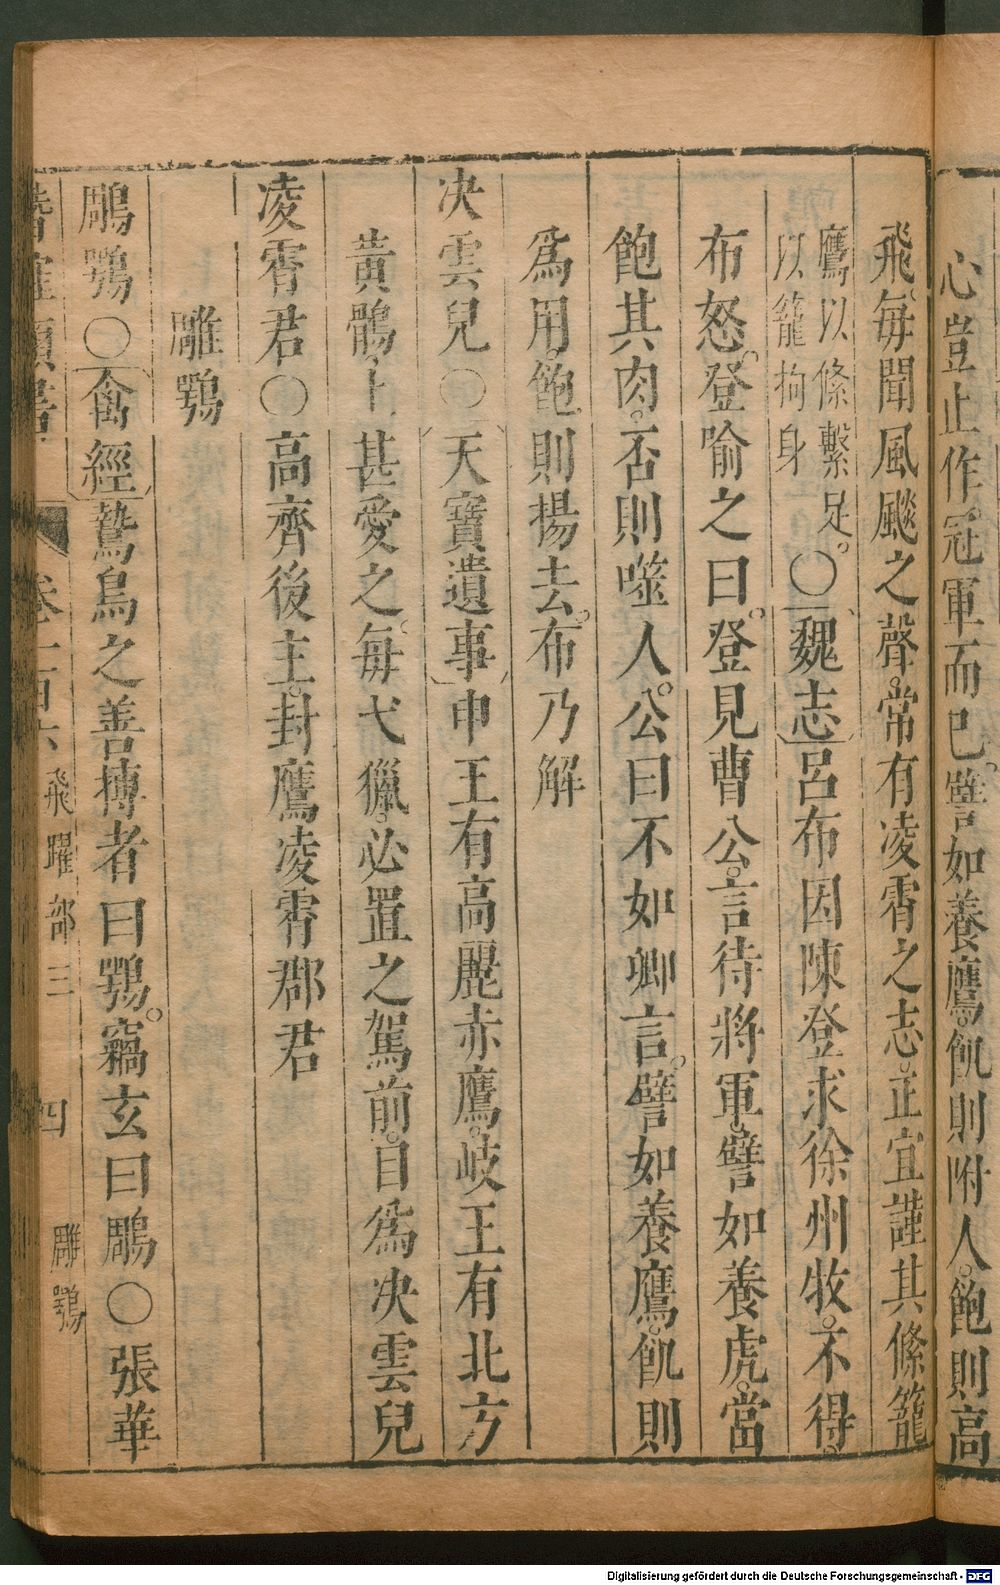 心豈止作冠軍而已譬如養鷹飢則附人飽則高
飛每聞風飈之聲常有凌霄之志正宜謹其絛籠
鷹以絛繫足
以籠拘身
○魏志呂布因陳登求徐州牧不得
布怒登喻之曰登見曹公言待將軍譬如養虎當
飽其肉否則噬人公曰不如卿言譬如養鷹飢則
爲用飽則揚去布乃解
决雲兒○天寶遺事申王有高麗赤鷹岐王有北方
黃鶻上甚愛之每弋獵必置之駕前目爲决雲兒
凌霄君○高齊後主封鷹凌霄郡君
雕鶚
鵰鶚○禽經鷙鳥之善搏者曰鶚竊玄曰鵰○張華
卷一百六 飛躍部三 四 雕鶚
Digitalisierung gefördert durch die Deutsche Forschungsgemeinschaft - DFG